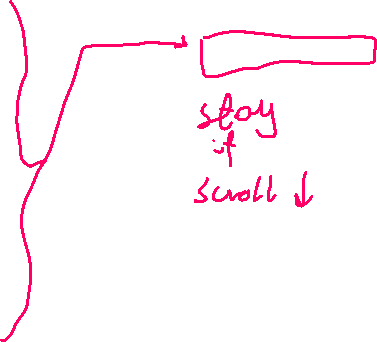 stay
if
scroll ↓